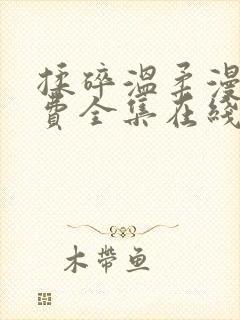 揉碎温柔漫
费全集在线
木带鱼